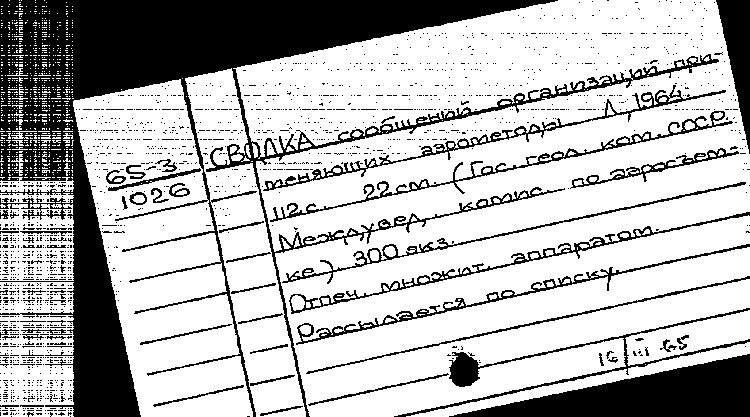 65-3
1026
СВОДКА сообщений организаций при-
меняющих аэрометоды Л., 1964.
112 с. 22 см. (Гос. геол. ком. СССР.
Междувед. комис. по аэросъем-
ке). 300 экз.
Отпеч. множит. аппаратом.
Рассылается по списку.
16/III 65